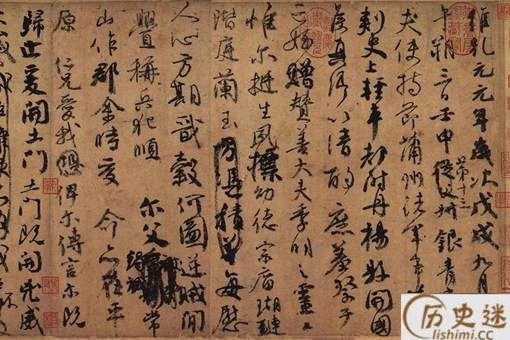 維乾元元年歲次戊戌九月
午朔三日壬申第十三從父銀青
夫使持節蒲州諸軍事
刺史上輕車都尉丹楊縣開國
侯真卿以清酌庶羞祭于
亡姪贈贊善大夫季明之靈曰
惟爾挺生夙標幼德宗廟瑚璉
階庭蘭玉方憑積善每慰
人心方期戩穀何圖逆賊閒
釁稱兵犯順爾父竭誠常
山作郡余時受命亦在平
原仁兄愛我恐俾爾傳言爾既
歸止爰開土門土門既開凶威
历史迷
lishimi.cc